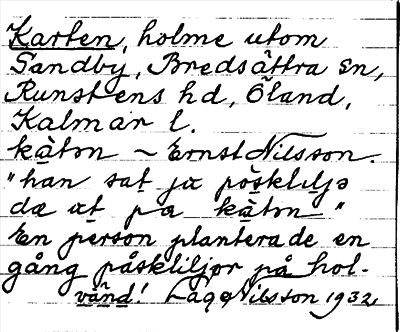 Karten, holme utom
Sandby, Bredsättra sn,
Runstens hd, Öland,
Kalmar l.
kàton ~ Ernst Nilsson.
"han sat ja påskliljə
da ut pa kàton"
En person planterade en
gång påskliljor på hol-
vänd! Lage Nilsson 1932